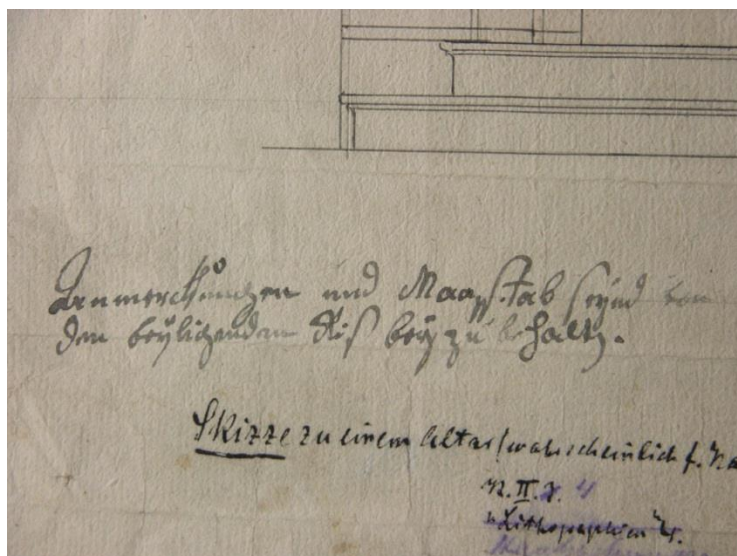 Anmerckhungen und Maaßstab seynd von
den beyligenden Riß bey zu behalt.
Skizze zu einem Altar (wahrscheinlich f.
N. II. 4
"Lithographien"